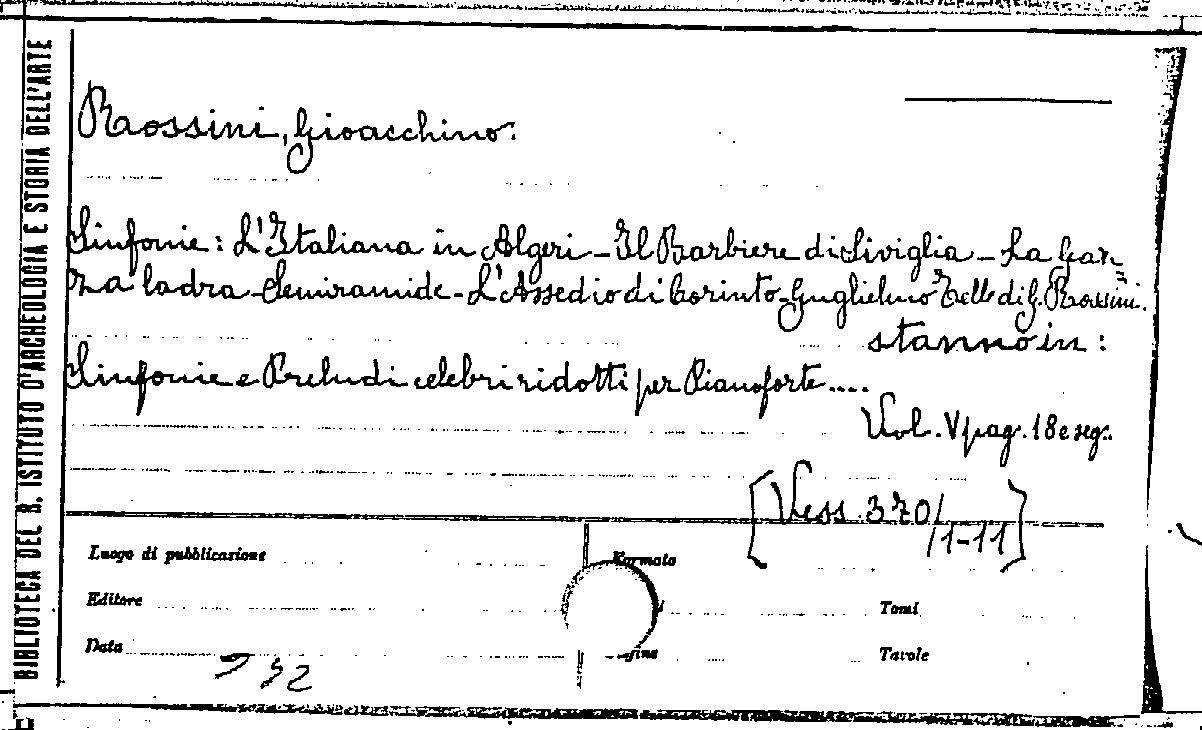 BIBLIOTECA DEL R. ISTITUTO D'ARCHEOLOGIA E STORIA DELL'ARTE
Rossini, Gioacchino.
Sinfonie: L'Italiana in Algeri - Il Barbiere di Siviglia - La Gaz=
za ladra - Semiramide - L'Assedio di Corinto - Guglielmo Tell di G. Rossini.
stanno in:
Sinfonie e Preludi celebri ridotti per Pianoforte....
Vol. V pag. 18 e seg.
[Vess. 370/
/1-11]
Luogo di pubblicazione Formato
Editore Tomi
Data Tavole